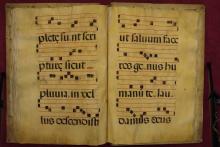 plete sunt scri
pture sicut
pluvia in vel
lus descendisti
ut salvum face
res genus hu
manum te lau
damus deus